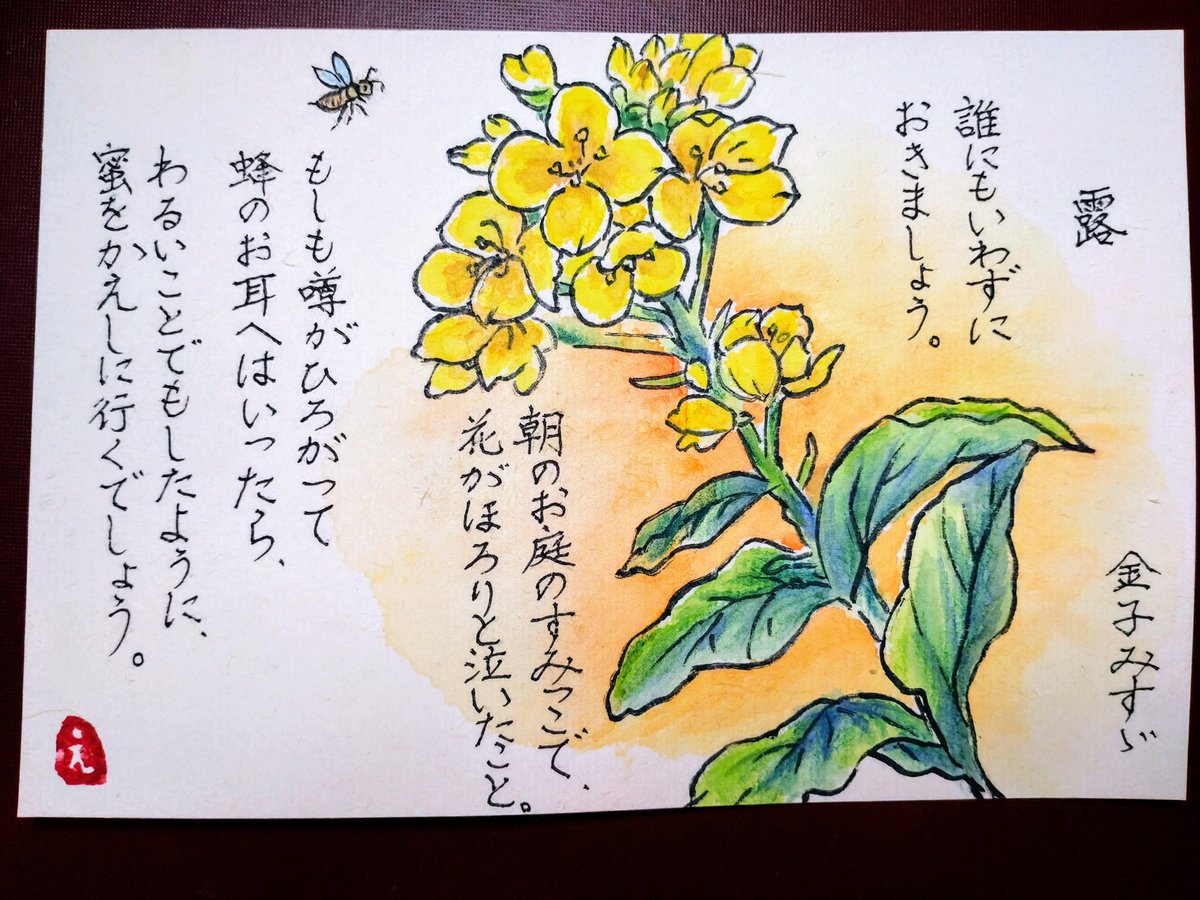 露
金子みすゞ
誰にもいわずに
おきましょう。
朝のお庭のすみっこで、
花がほろりと泣いたこと。
もしも噂がひろがって
蜂のお耳へはいったら、
わるいことでもしたように、
蜜をかえしに行くでしょう。
え